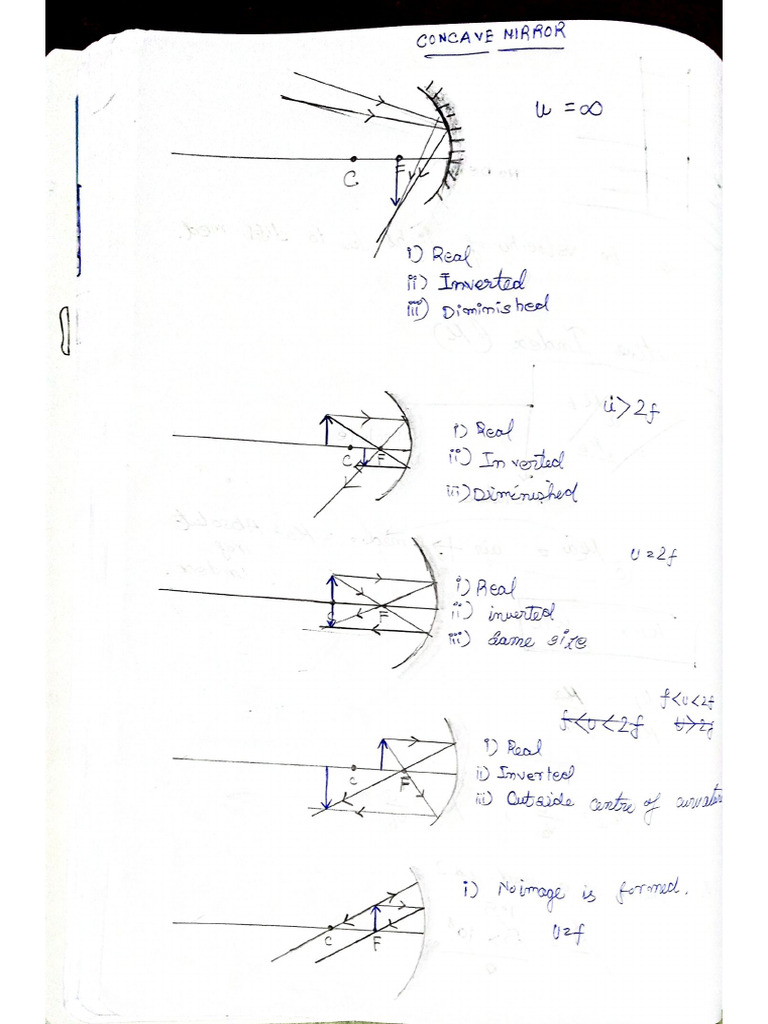 CONCAVE MIRROR
u = ∞
C F
i) Real
ii) Inverted
iii) Diminished
u > 2f
i) Real
C F
ii) Inverted
iii) Diminished
u = 2f
i) Real
F
ii) inverted
iii) Same size
f < u < 2f
f < u < 2f u > 2f
i) Real
C F
ii) Inverted
iii) Outside centre of
i) No image is formed.
u = f
C F